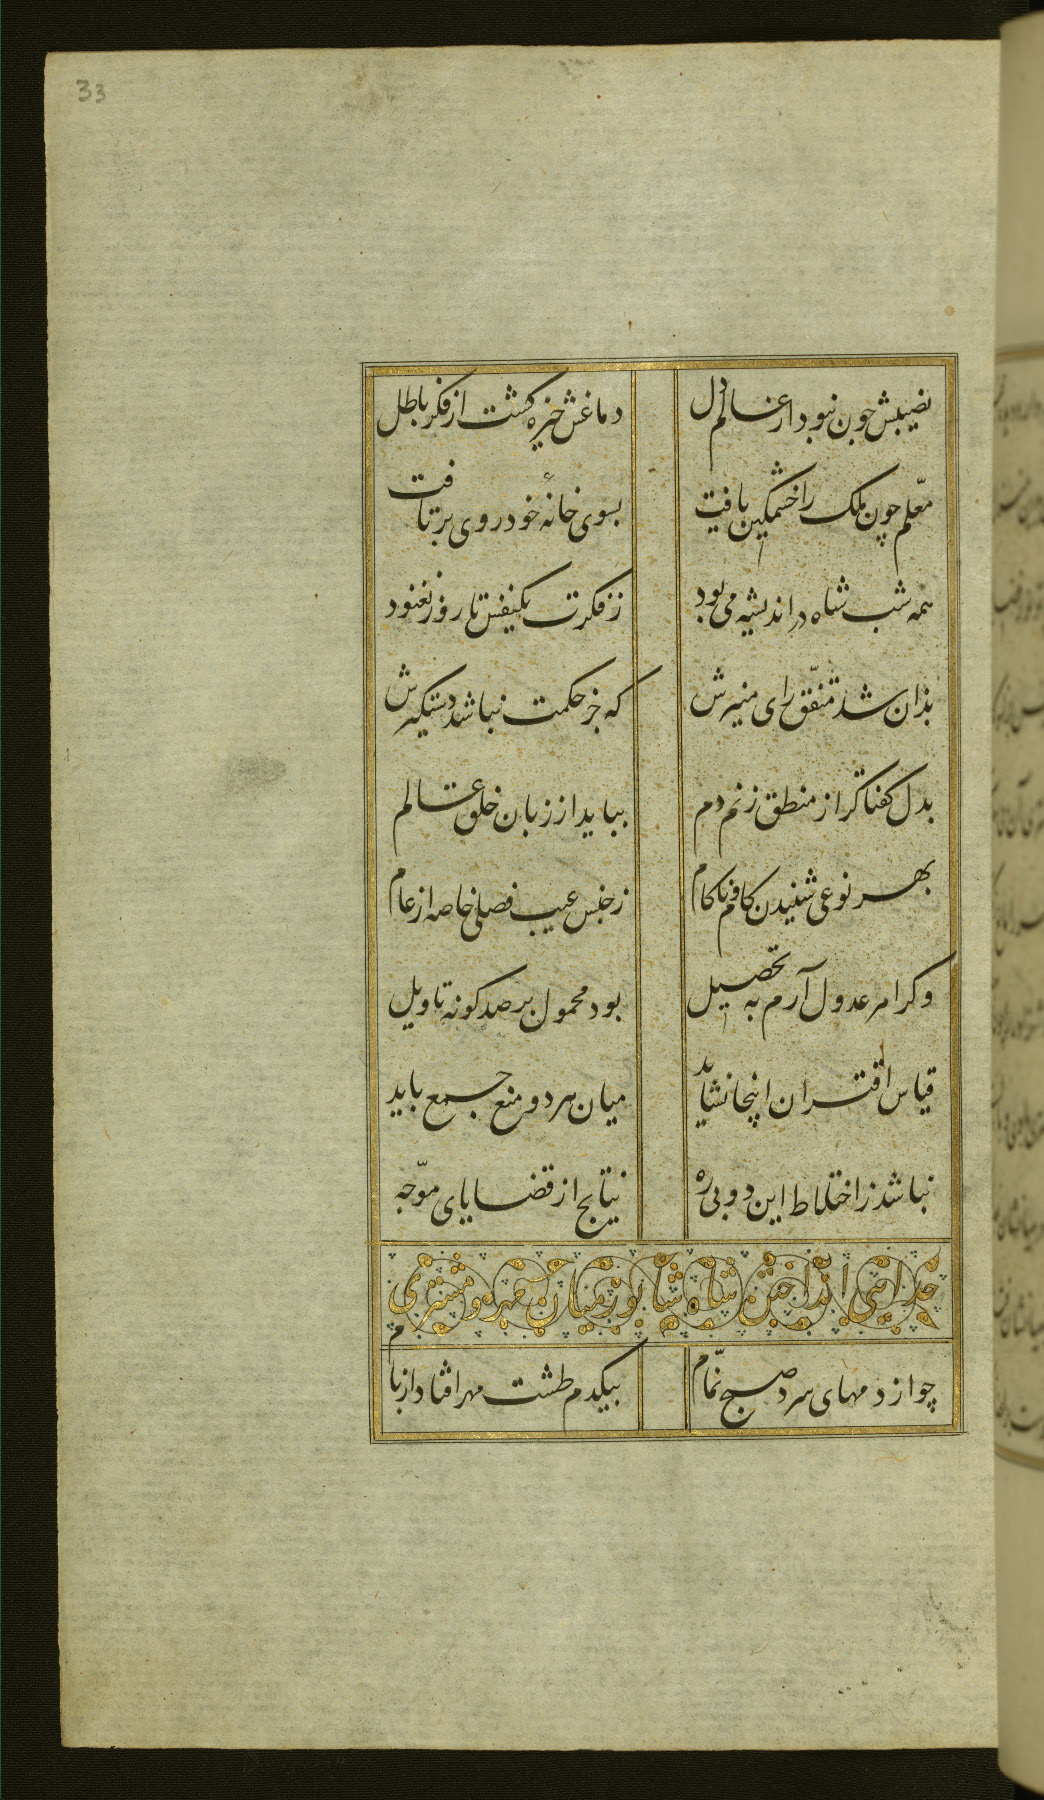 33
نصیبش چون نبود از عالم دل دماغش خیره گشت از فکر باطل
معلّم چون ملک را خشمگین یافت بسوی خانهٔ خود روی برتافت
همه شب شاه در اندیشه می بود ز فکرت یکنفس تا روز نغنود
بذان شد متفّق رای منیرش که جز حکمت نباشد دستکیرش
بدل کفتا کر از منطق زنم دم بباید از زبان خلق عالم
بهر نوعی شنیدن کام ناکام ز جنس عیب فصلی خاصه از عام
وکر امر عدول آرم به تحصیل بود محمول بر صد کونه تاویل
قیاس اقتران اینجا نشاید میان هر دو منع جمع باید
نباشد ز اختلاط این دو بی ره نتایج از قضایای موّجه
جدایی انداختن شاه شابور میان مهر و مشتری
چو از دمهای سرد صبح نمّام بیکدم طشت مهر افتاد از بام